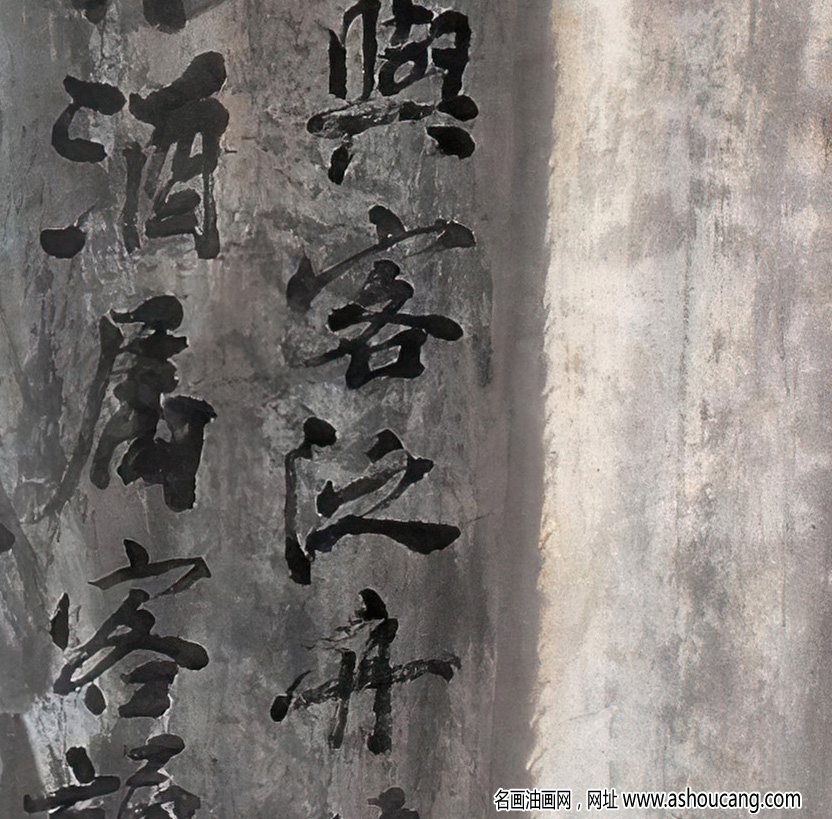 與客泛舟
酒屬客誦
名画油画网，网址 www.ashoucang.com